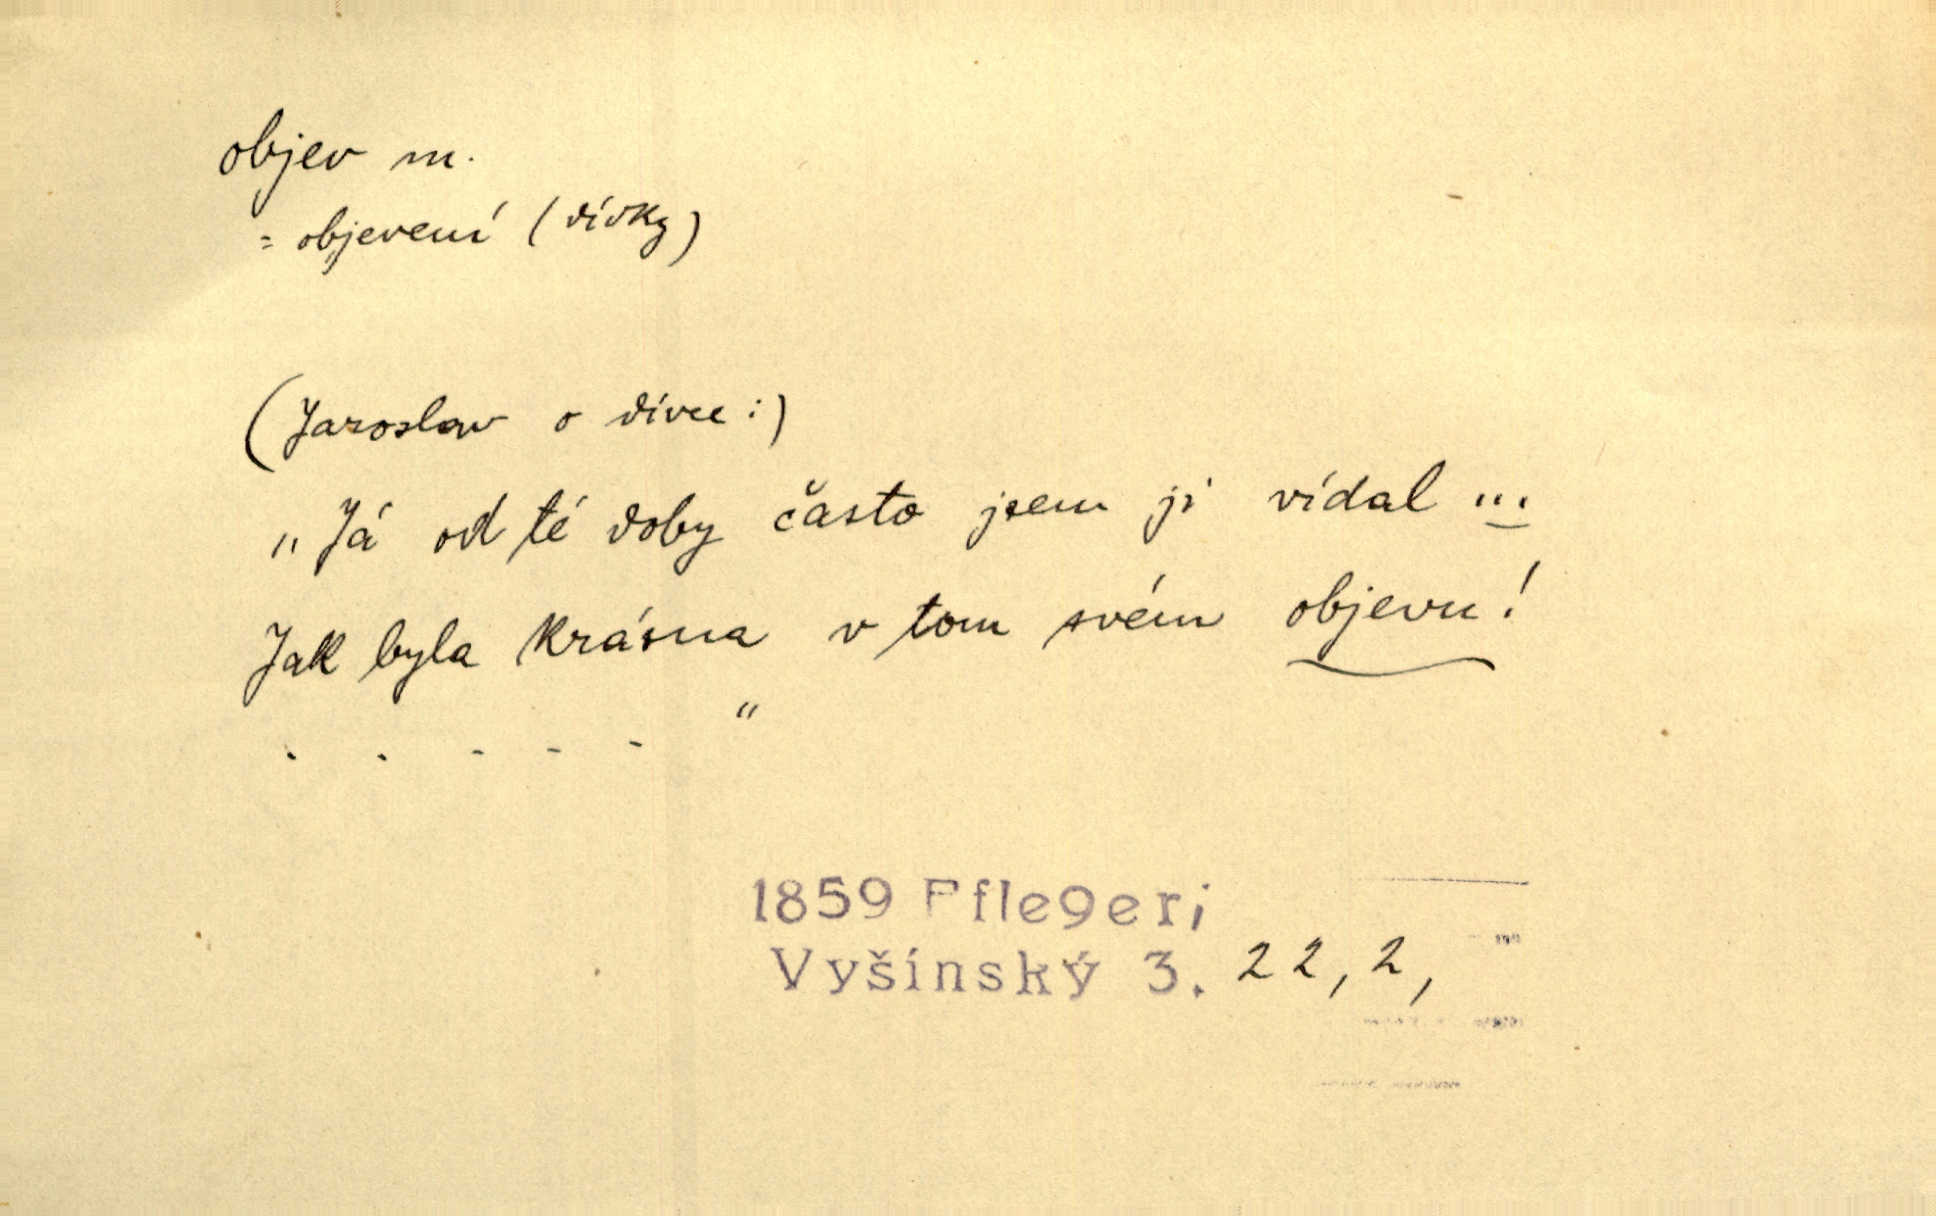 objev m.
= objevení (dívky)
(Jaroslav o dívce:)
„Já od té doby často jsem ji vídal ...
Jak byla krásna v tom svém objevu!
. . - - - "
1859 Pfleger;
Vyšínský 3. 22, 2,